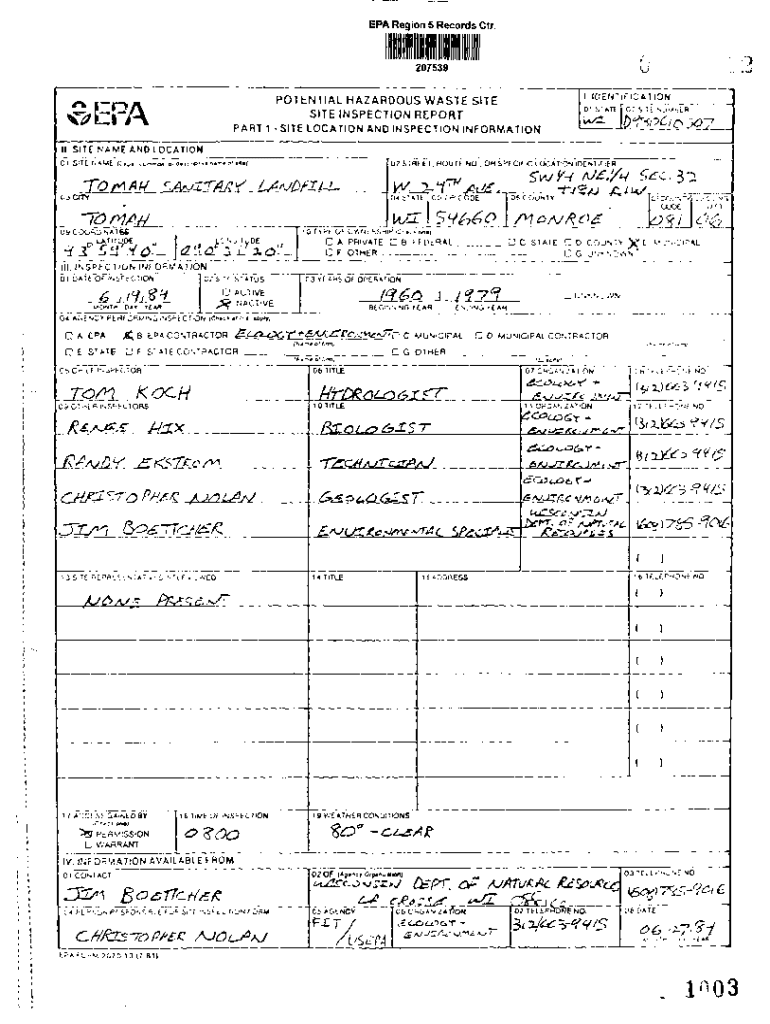 EPA Region 5 Records Ctr.
207539
EPA
POTENTIAL HAZARDOUS WASTE SITE
SITE INSPECTION REPORT
PART 1 - SITE LOCATION AND INSPECTION INFORMATION
I. IDENTIFICATION
01 STATE 02 SITE NUMBER
WI
II. SITE NAME AND LOCATION
01 SITE NAME
02 STREET, ROUTE NO., OR SPECIFIC LOCATION IDENTIFIER
SW 1/4 NE 1/4 SEC. 32
TOMAH SANITARY LANDFILL
W. 24TH AVE.
03 CITY
04 STATE 05 ZIP CODE 06 COUNTY
TOMAH
WI 54660 MONROE 081 06
09 COORDINATES
LATITUDE
10 TYPE OF OWNERSHIP
A. PRIVATE B. FEDERAL C. STATE D. COUNTY E. MUNICIPAL
F. OTHER G. UNKNOWN
III. INSPECTION INFORMATION
01 DATE OF INSPECTION 02 SITE STATUS 03 YEARS OF OPERATION
6 19 84
MONTH DAY YEAR
ACTIVE
INACTIVE
1960 1979
BEGINNING YEAR ENDING YEAR
UNKNOWN
04 AGENCY PERFORMING INSPECTION (Check all that apply)
A. EPA B. EPA CONTRACTOR ECOLOGY + ENVIRONMENT C. MUNICIPAL D. MUNICIPAL CONTRACTOR
E. STATE F. STATE CONTRACTOR G. OTHER
05 CHIEF INSPECTOR 06 TITLE 07 ORGANIZATION 08 TELEPHONE NO.
TOM KOCH HYDROLOGIST ECOLOGY + ENVIRONMENT (312)663-9415
09 OTHER INSPECTORS 10 TITLE 11 ORGANIZATION 12 TELEPHONE NO.
RENEE HIX BIOLOGIST ECOLOGY + ENVIRONMENT (312)663-9415
RANDY EKSTROM TECHNICIAN ECOLOGY + ENVIRONMENT (312)663-9415
CHRISTOPHER NOLAN GEOLOGIST ECOLOGY + ENVIRONMENT (312)663-9415
JIM BOETTCHER ENVIRONMENTAL SPECIALIST WISCONSIN DEPT. OF NATURAL RESOURCES (608)785-9016
13 SITE REPRESENTATIVES INTERVIEWED 14 TITLE 15 ADDRESS 16 TELEPHONE NO
NONE PRESENT
17 ACCESS GAINED BY 18 TIME OF INSPECTION 19 WEATHER CONDITIONS
PERMISSION
WARRANT
0800 80° - CLEAR
IV. INFORMATION AVAILABLE FROM
01 CONTACT 02 OF (Agency/Organization) 03 TELEPHONE NO
JIM BOETTCHER WISCONSIN DEPT. OF NATURAL RESOURCE
LA CROSSE, WI OFFICE
(608)785-9016
04 PERSON RESPONSIBLE FOR SITE INSPECTION FORM 05 AGENCY 06 ORGANIZATION 07 TELEPHONE NO. 08 DATE
CHRISTOPHER NOLAN FIT/USEPA ECOLOGY + ENVIRONMENT 312/663-9415 06-27-84
EPA FORM 2070-13 (7-81)
1003